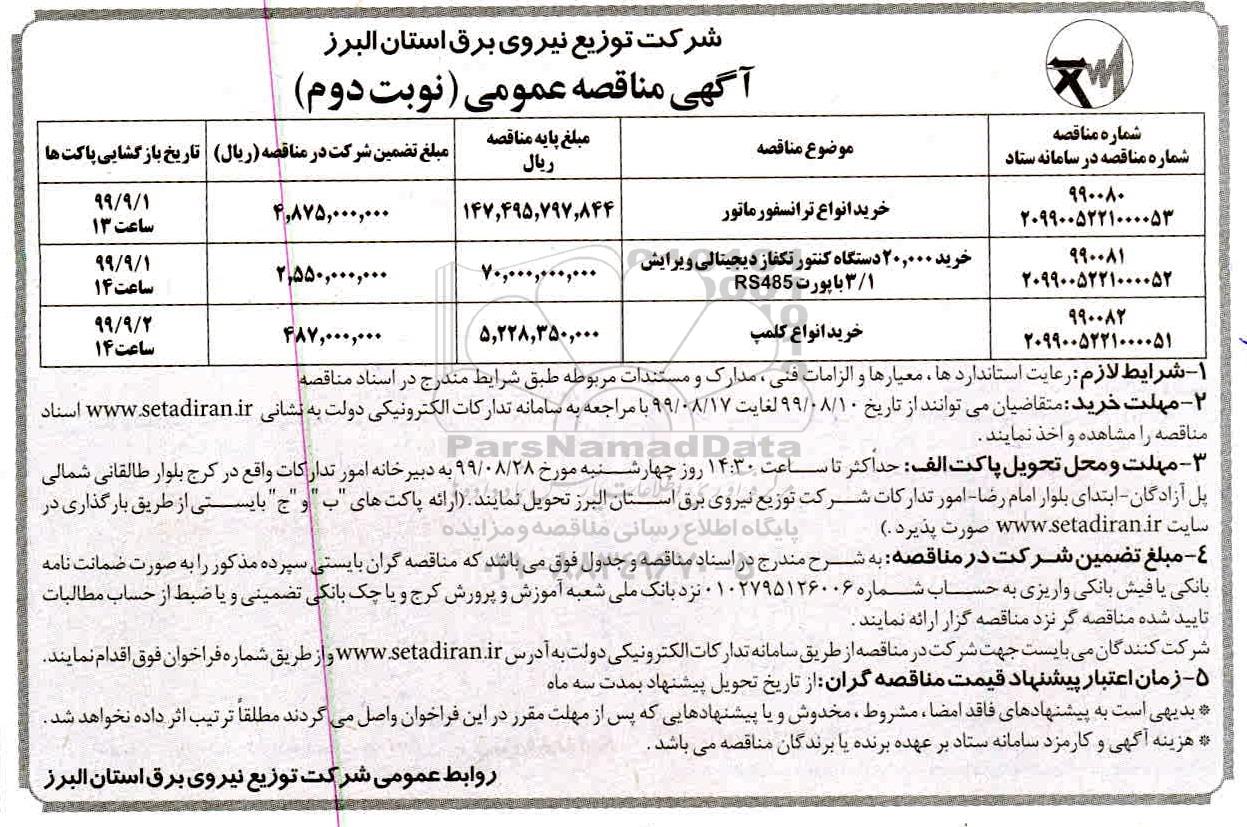 شرکت توزیع نیروی برق استان البرز
آگهی مناقصه عمومی (نوبت دوم)
شماره مناقصه
شماره مناقصه در سامانه ستاد
موضوع مناقصه
مبلغ پایه مناقصه
ریال
مبلغ تضمین شرکت در مناقصه (ریال)
تاریخ بازگشایی پاکت ها
۹۹۰۰۸۰
۲۰۹۹۰۰۵۲۲۱۰۰۰۰۵۳
خرید انواع ترانسفورماتور
۱۴۷,۴۹۵,۷۹۷,۸۴۴
۴,۸۷۵,۰۰۰,۰۰۰
۹۹/۹/۱
ساعت ۱۳
۹۹۰۰۸۱
۲۰۹۹۰۰۵۲۲۱۰۰۰۰۵۲
خرید ۲۰,۰۰۰ دستگاه کنتور تکفاز دیجیتالی ویرایش
۳/۱ با پورت RS485
۷۰,۰۰۰,۰۰۰,۰۰۰
۲,۵۵۰,۰۰۰,۰۰۰
۹۹/۹/۱
ساعت ۱۴
۹۹۰۰۸۲
۲۰۹۹۰۰۵۲۲۱۰۰۰۰۵۱
خرید انواع کلمپ
۵,۲۲۸,۳۵۰,۰۰۰
۴۸۷,۰۰۰,۰۰۰
۹۹/۹/۲
ساعت ۱۴
۱-شرایط لازم: رعایت استاندارد ها ، معیارها و الزامات فنی ، مدارک و مستندات مربوطه طبق شرایط مندرج در اسناد مناقصه
۲-مهلت خرید: متقاضیان می توانند از تاریخ ۹۹/۰۸/۱۰ لغایت ۹۹/۰۸/۱۷ با مراجعه به سامانه تدارکات الکترونیکی دولت به نشانی www.setadiran.ir اسناد
مناقصه را مشاهده و اخذ نمایند .
ParsNamadData
۳-مهلت و محل تحویل پاکت الف: حداکثر تا ساعت ۱۴:۳۰ روز چهارشنبه مورخ ۹۹/۰۸/۲۸ به دبیرخانه امور تدارکات واقع در کرج بلوار طالقانی شمالی
پل آزادگان-ابتدای بلوار امام رضا-امور تدارکات شرکت توزیع نیروی برق استان البرز تحویل نمایند. (ارائه پاکت های "ب" و "ج" بایستی از طریق بارگذاری در
سایت www.setadiran.ir صورت پذیرد .)
پایگاه اطلاع رسانی مناقصه و مزایده
۴-مبلغ تضمین شرکت در مناقصه: به شرح مندرج در اسناد مناقصه و جدول فوق می باشد که مناقصه گران بایستی سپرده مذکور را به صورت ضمانت نامه
بانکی یا فیش بانکی واریزی به حساب شماره ۰۱۰۲۷۹۵۱۲۶۰۰۶ نزد بانک ملی شعبه آموزش و پرورش کرج و یا چک بانکی تضمینی و یا ضبط از حساب مطالبات
تایید شده مناقصه گر نزد مناقصه گزار ارائه نمایند .
شرکت کنندگان می بایست جهت شرکت در مناقصه از طریق سامانه تدارکات الکترونیکی دولت به آدرس www.setadiran.ir و از طریق شماره فراخوان فوق اقدام نمایند.
۵-زمان اعتبار پیشنهاد قیمت مناقصه گران: از تاریخ تحویل پیشنهاد بمدت سه ماه
* بدیهی است به پیشنهادهای فاقد امضا ، مشروط ، مخدوش و یا پیشنهادهایی که پس از مهلت مقرر در این فراخوان واصل می گردند مطلقاً ترتیب اثر داده نخواهد شد .
* هزینه آگهی و کارمزد سامانه ستاد بر عهده برنده یا برندگان مناقصه می باشد .
روابط عمومی شرکت توزیع نیروی برق استان البرز